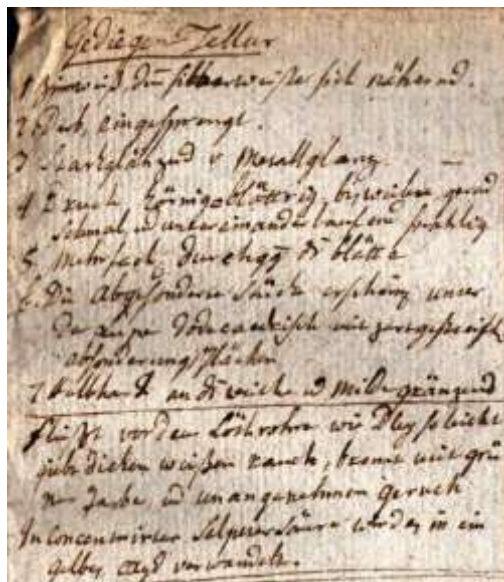 Gediegen Tellur
1 Zinnweiß, dem silberweißen sich nähernd.
2. Derb, eingesprengt.
3 Starkglänzend v Metallglanz
4 Bruch körnigblättrig, bisweilen gerad
schmal und untereinanderlaufend strahlig
5. Mehrfach durchgg d blätter
6. Die abgesonderte Stücke erscheinen unter
der Lupe mit zartgestreifte
absonderungsflächen
7 Halbhart an d weiche und Milde gränzend
fließt vor dem Löthrohre wie Bley so leicht
giebt dicken weißen rauch, brennt mit grü
ner Farbe und unangenehmen geruch
In concentrirter Salpetersäure wird es in ein
gelbes oxyd verwandelt.